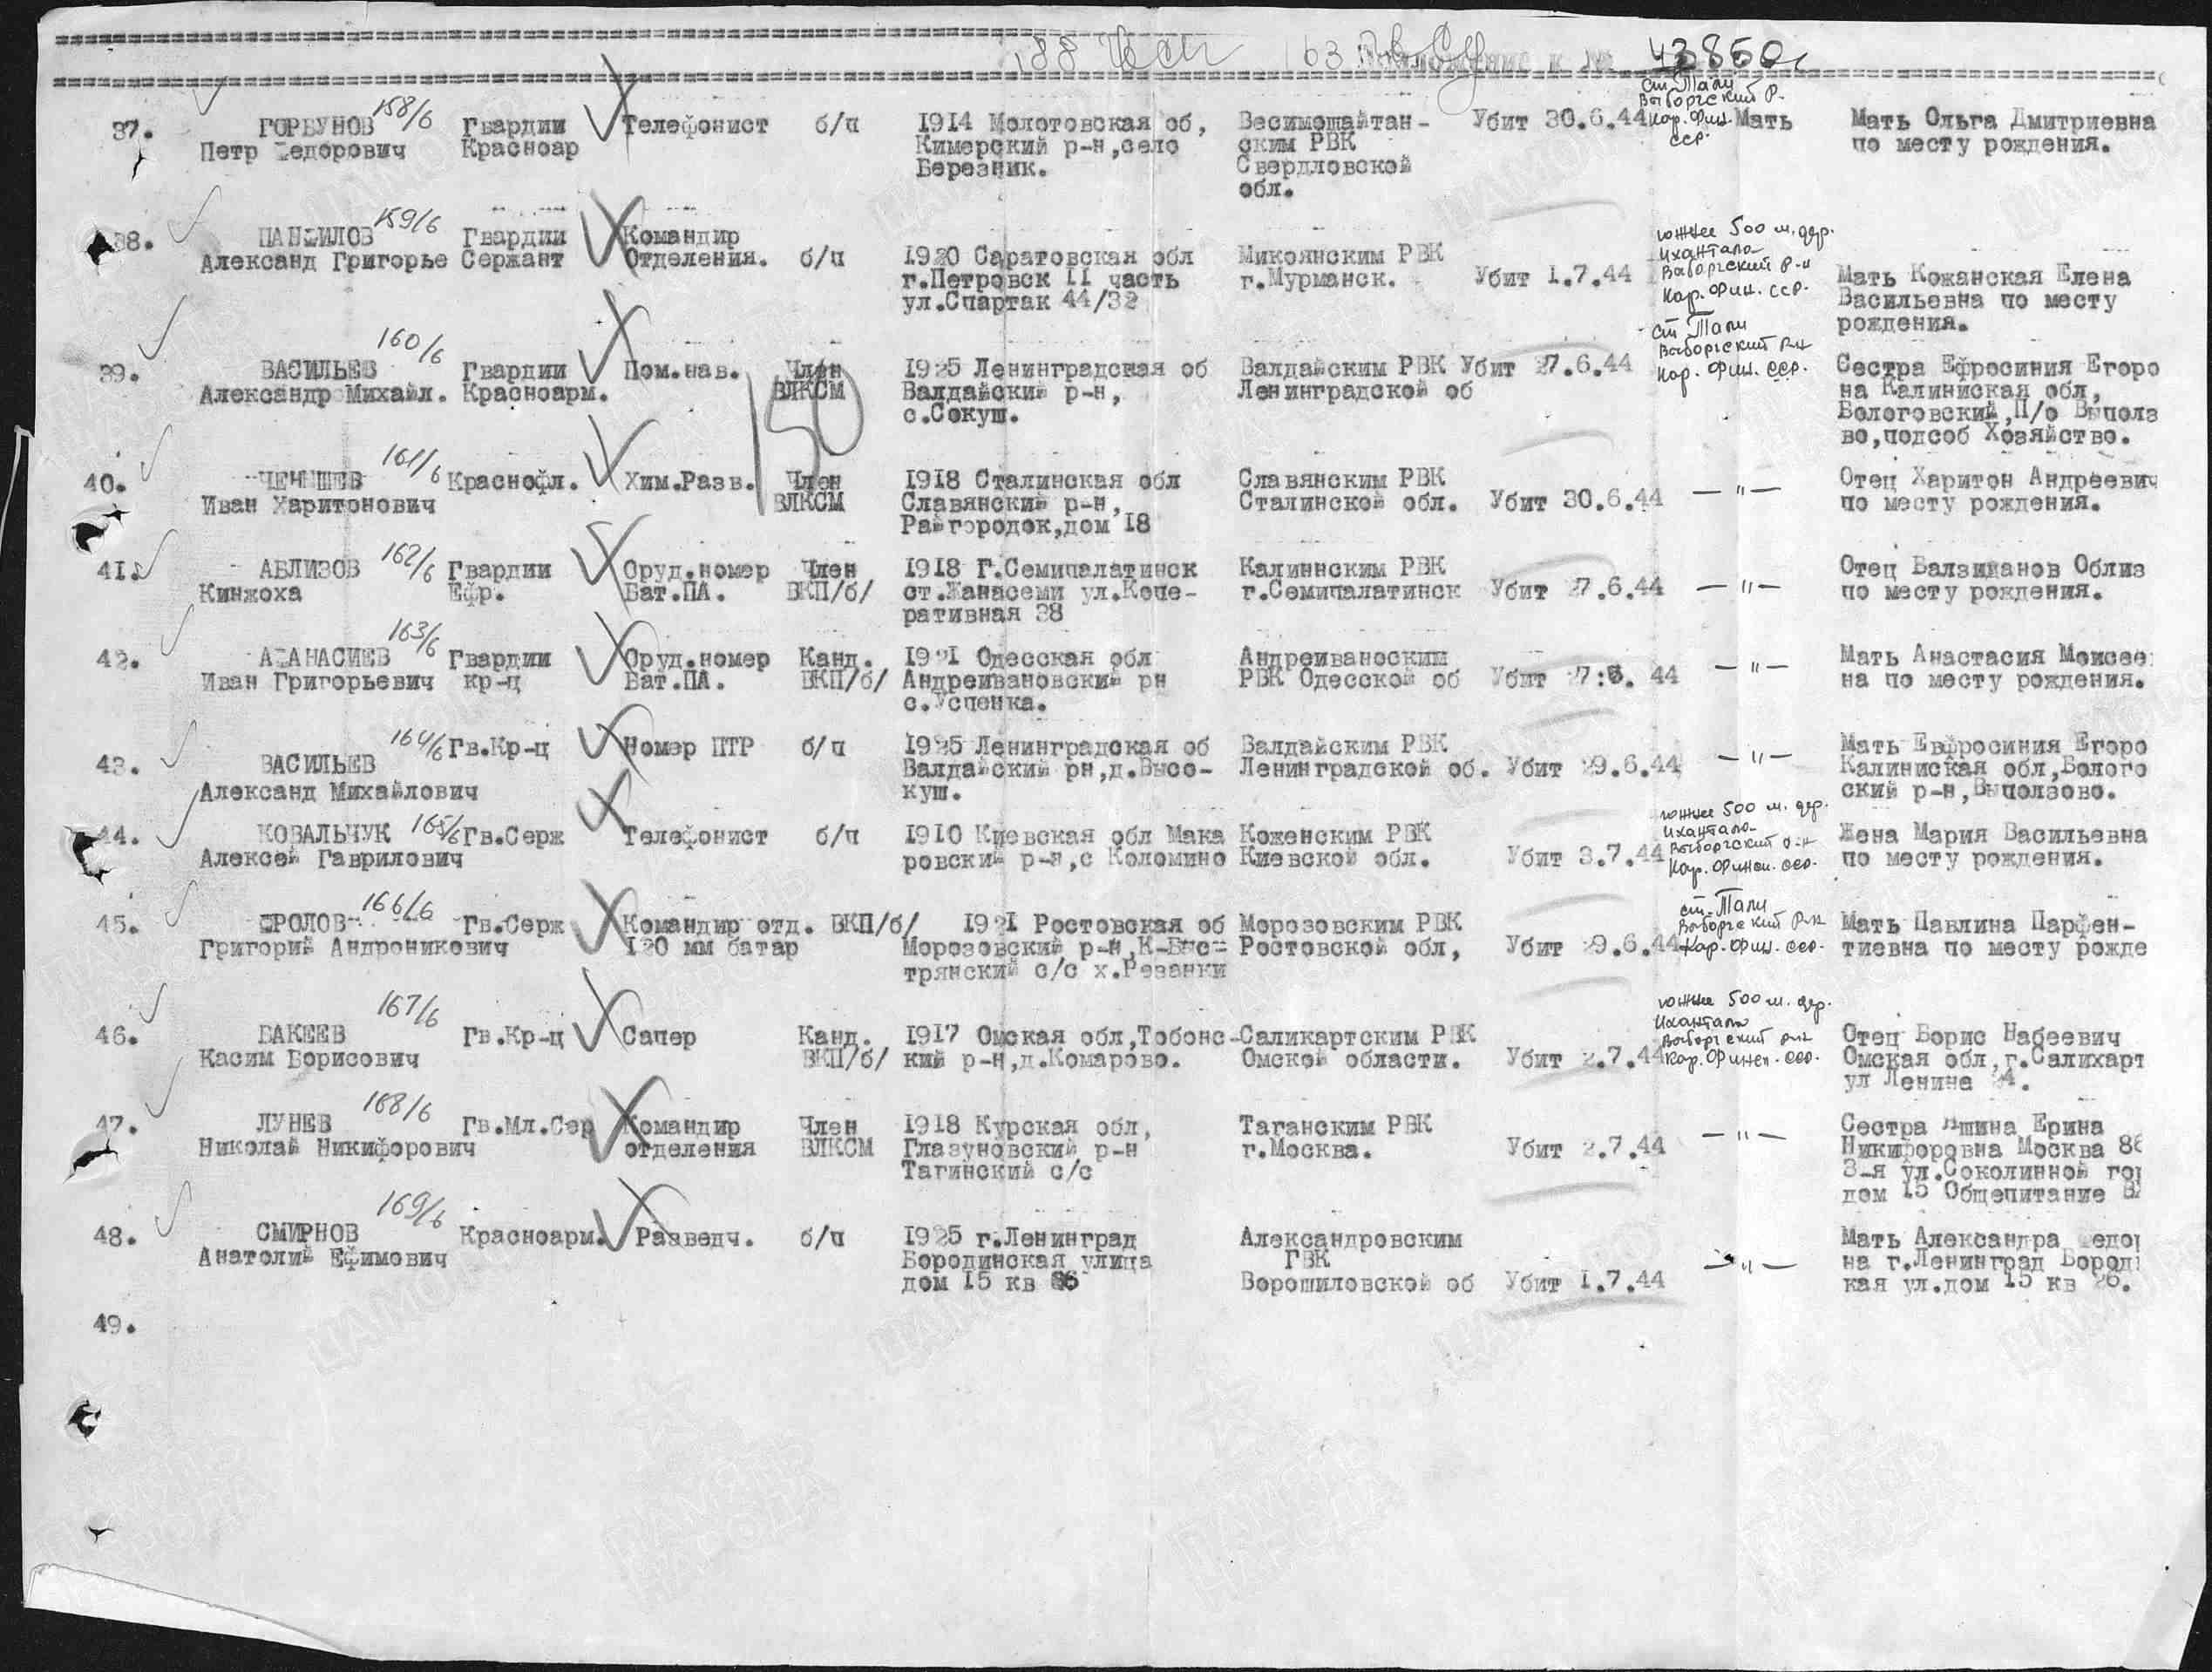 188 163 43850с
37. ГОРБУНОВ 158/6 Гвардии Телефонист б/п 1914 Молотовская об, Весимошайтан- Убит 30.6.44 ст Тали Выборгский р. Кар. Фин. ССР. Мать Мать Ольга Дмитриевна
Петр Федорович Красноар Кимерский р-н,село ским РВК по месту рождения.
Березник. Свердловской
обл.
38. ПАНФИЛОВ 159/6 Гвардии Командир южнее 500 м. дер.
Александ Григорье Сержант Отделения. б/п 1920 Саратовская обл Микоянским РВК Ихантала
г.Петровск II часть г.Мурманск. Убит 1.7.44 Выборгский р-н Мать Кожанская Елена
ул.Спартак 44/32 Кар. Фин. ССР. Васильевна по месту
рождения.
39. ВАСИЛЬЕВ 160/6 Гвардии Пом.нав. Член 1925 Ленинградская об Валдайским РВК Убит 27.6.44 ст Тали Выборгский р-н Кар. Фин. ССР. Сестра Ефросиния Егоро
Александр Михайл. Красноарм. ВЛКСМ Валдайский р-н, Ленинградской об на Калиниская обл,
с.Сокуш. Бологовский,П/о Выполз
150 во,подсоб Хозяйство.
40. ЧЕНЫШЕВ 161/6 Краснофл. Хим.Разв. Член 1918 Сталинская обл Славянским РВК Отец Харитон Андреевич
Иван Харитонович ВЛКСМ Славянский р-н, Сталинской обл. Убит 30.6.44 — " — по месту рождения.
Райгородок,дом 18
41. АБЛИЗОВ 162/6 Гвардии Оруд.номер Член 1918 Г.Семипалатинск Калиннским РВК Отец Валзиданов Облиз
Кинжоха Ефр. Бат.ПА. ВКП/б/ ст.Жанасеми ул.Копе- г.Семипалатинск Убит 27.6.44 — " — по месту рождения.
ративная 38
42. АФАНАСИЕВ 163/6 Гвардии Оруд.номер Канд. 1921 Одесская обл Андреиваноским Мать Анастасия Моисее
Иван Григорьевич кр-ц Бат.ПА. ВКП/б/ Андреивановский рн РВК Одесской об Убит 27:6. 44 — " — на по месту рождения.
с.Успенка.
43. 164/6 Гв.Кр-ц Номер ПТР б/п 1925 Ленинградская об Валдайским РВК Мать Евфросиния Егоро
ВАСИЛЬЕВ Валдайский рн,д.Высо- Ленинградской об. Убит 29.6.44 — " — Калиниская обл,Болого
Александ Михайлович куш. ский р-н,Выползово.
44. КОВАЛЬЧУК 165/6 Гв.Серж Телефонист б/п 1910 Киевская обл Мака Коженским РВК южнее 500 м. дер. Ихантала Жена Мария Васильевна
Алексей Гаврилович ровский р-н,с Коломино Киевской обл. Убит 3.7.44 Выборгский р-н Кар. Финск. ССР. по месту рождения.
45. ФРОЛОВ 166/6 Гв.Серж Командир отд. ВКП/б/ 1921 Ростовская об Морозовским РВК ст. Тали Выборгский р-н Мать Павлина Парфен-
Григорий Андроникович 120 мм батар Морозовский р-н,К-Быс- Ростовской обл, Убит 29.6.44 Кар. Фин. ССР. тиевна по месту рожде
трянский с/с х.Резанки
46. БАКЕЕВ 167/6 Гв.Кр-ц Сапер Канд. 1917 Омская обл,Тобонс- Саликартским РВК южнее 500 м. дер. Ихантала Выборгский р-н Отец Борис Набеевич
Касим Борисович ВКП/б/ кий р-н,д.Комарово. Омской области. Убит 2.7.44 Кар. Финск. ССР. Омская обл,г.Салихарт
ул Ленина 24.
47. ЛУНЕВ 168/6 Гв.Мл.Сер Командир Член 1918 Курская обл, Таганским РВК Сестра Ерина
Николай Никифорович отделения ВЛКСМ Глазуновский р-н г.Москва. Убит 2.7.44 — " — Никифоровна Москва 86
Тагинский с/с 3-я ул.Соколинной гор
дом 15 Общепитание
48. СМИРНОВ 169/6 Красноарм. Разведч. б/п 1925 г.Ленинград Александровским Мать Александра Федор
Анатолий Ефимович Бородинская улица ГВК — " — на г.Ленинград Бород
дом 15 кв 86 Ворошиловской об Убит 1.7.44 кая ул.дом 15 кв 26.
49.